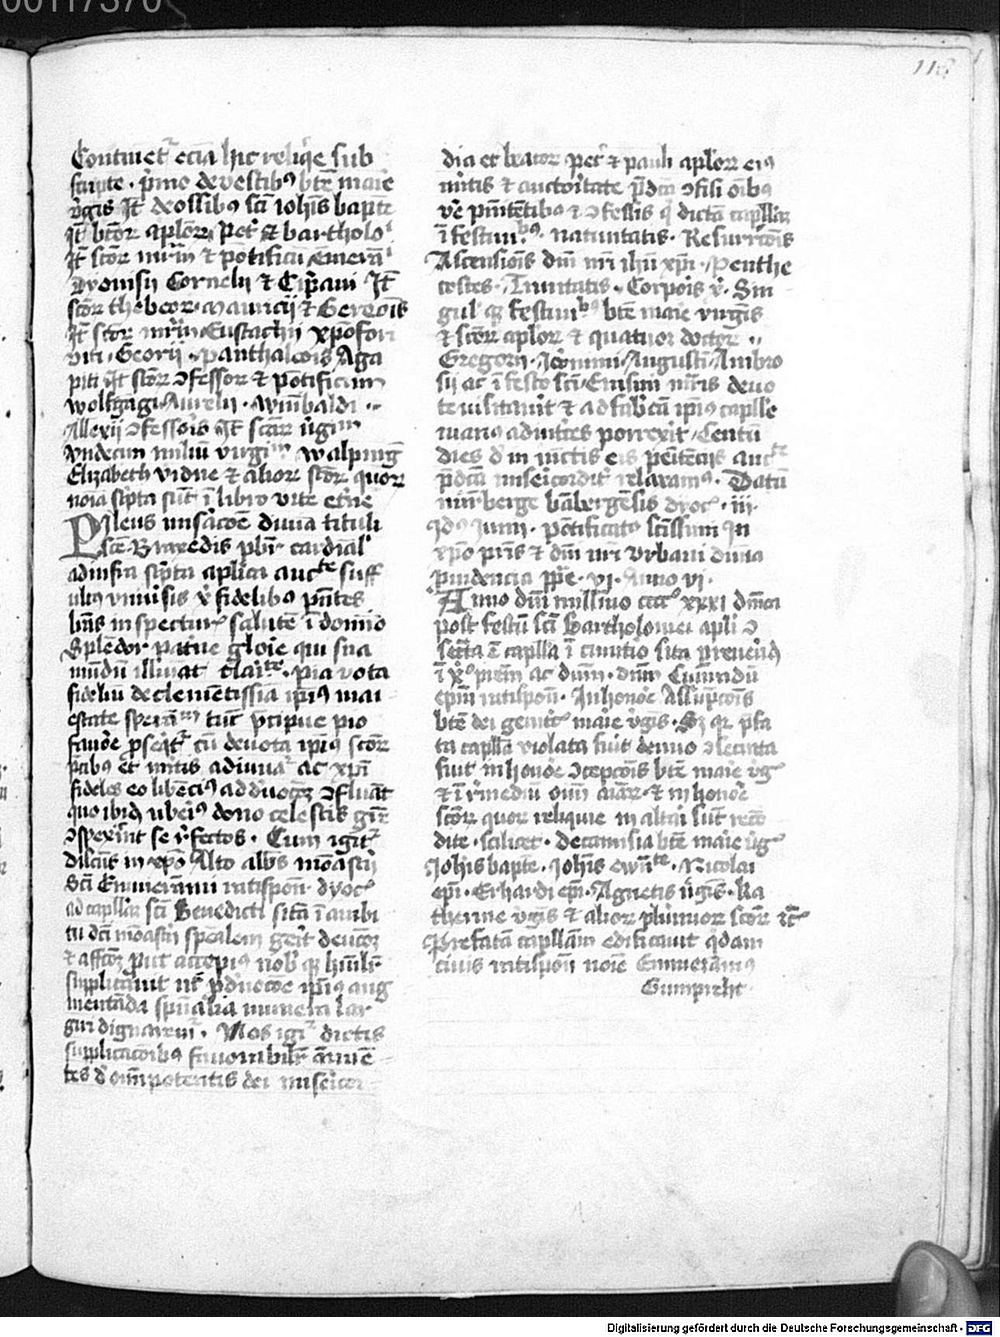 00117370
118
Continet᷑ ecia hic reliq̄e sub
scripte · p̄mo de vestibꝰ btē marie
v̄gis Jt̄ de ossibꝰ sci Ioh̄is bapte
Jt̄ btōr aplōrꝝ Pet̄ et bartholo
Jt̄ scōr mrm̄ et pōtificū emera̅
dyonisii Cornelii et Cip̄ani Jt̄
scōr thebeor mauricii et Gereōis
Jt̄ scōr mr̄m Eustachii xpofori
viti · Georii · panthaleōis Aga
piti Jt̄ scōr ↄfessor et pōtificum
wolfgagi Aurelii · wūibaldi ··
Allexii ↄfessoris Jt̄ scār v̄ginū
vndecim miliū virginū walpurḡ
Elizabeth vidue et alior scōr quor
noīa sc̄pta sūt ī libro vite etn̄e
Pileus miserac̄oe diuina tituli
sc̄e Praxedis pbr̄ cardīal
ad infra sc̄pta aplica auctᵗᵉ suff
ultꝰ vniu̅sis xp̄ fidelibꝰ p̄ntes
lr̄as inspectur̄ salutē ī domīo
Splēdor patn̄e glorie qui sua
mūdū illūiat clarit̄e · pia vota
fideliū de clemētissia ip̄iꝰ mai
estate sperātiū tūc p̄cipue pio
fauōe pseq̄t᷑ cū deuota ip̄oꝝ scōr
p̄cibꝰ et m̄itis adiuuat᷑ ac xp̄i
fideles eo libēciꝰ ad deuocōeꝫ ↄfluāt
quo ibidē vberiꝰ dono celestis gr̄e
ↄspexerint se refectos · Cum igit᷑
dilcūs in xp̄o Alto abb̄s mōastii
Sci Emmerāmi ratispoñ · dyoc̄
ad capllā sci Benedicti sitā ī ambi
tu dc̄i mōastii sp̄calem gerit deuc̄oꝫ
et affcōꝫ prout accepimꝰ nob̄ qꝫ humilr̄
supplicauit ut p̄ deuocōe ip̄iꝰ aug
mentāda sp̄ualia munera lar
giri dignarem̄ · Nos igit᷑ dictis
supplicacōibꝰ fauorabilr̄ ānuē
tes de om̄ipotentis dei misericor
dia et beator Pet̄ et pauli aplōrꝝ eiꝰ
mitis et auctoritate p̄dc̄a ↄfisi oībꝰ
ve̅ penitētibꝰ et ↄfessis q̄ dictā capllā
ī festiuitibꝰ · natiuitatis · Resurrcōis
Ascensiōis dn̄i nr̄i ihū xp̄i · Penthe
costes · Trinitatis · Corpois x̄ · Sin
gul̄ qꝫ festiuibꝰ btē marie virgīs
et scōrꝝ aplor et quatuor doctor ··
Gregorii · Jeronimi · Augusti Ambro
sii ac ī festo sci Erasmi mr̄is deuo
te visitauīt et ad fabcā ip̄iꝰ caplle
manꝰ adiutrices porrexīt Centū
dies de iniūctis eis penītēciis auctᵗᵉ
p̄dc̄a misericordit̄ relaxamꝰ · Datū
nurnberge bābergēsis dyoc̄ · iii ·
Idꝰ Junii · pōtificatꝰ sctīssimi in
xp̄o pr̄is et dn̄i nr̄i Vrbani diuina
prouidencia pp̄e · vi · Anno vi ·
Anno dn̄i millīmo cccc° xxxi dn̄ica
post festū sci Bartholomei apli ↄ
secrata ē caplla ī cimitio sita p reuerēdū
ī x̄° prēm ac dn̄m · dn̄m Cunradū
epm̄ ratispoñ · In honōe Assūpcōis
btē dei genitc̄ marie v̄gis · Sꝫ qꝛ p̄fa
ta caplla violata fuit denuo ↄsecrata
fuit in honōe ↄcepcōis btē marie v̄g
et ī remediū oīm aīaꝝ et in honōre
scōr quor reliquie in altari sūt reco̅
dite · scilicet · de camisia btē marie v̄g
Johīs bapte · Joh̄is ewn̄te · Nicolai
epi · Erhardi epi · Agnetis v̄gis · Ka
therine v̄gis et alior plurimor scōr etc̄
Prefatam capllām edificauit q̄dam
ciuis ratispoñ noīe Emmeramꝰ
Gumprcht ·
Digitalisierung gefördert durch die Deutsche Forschungsgemeinschaft - DFG